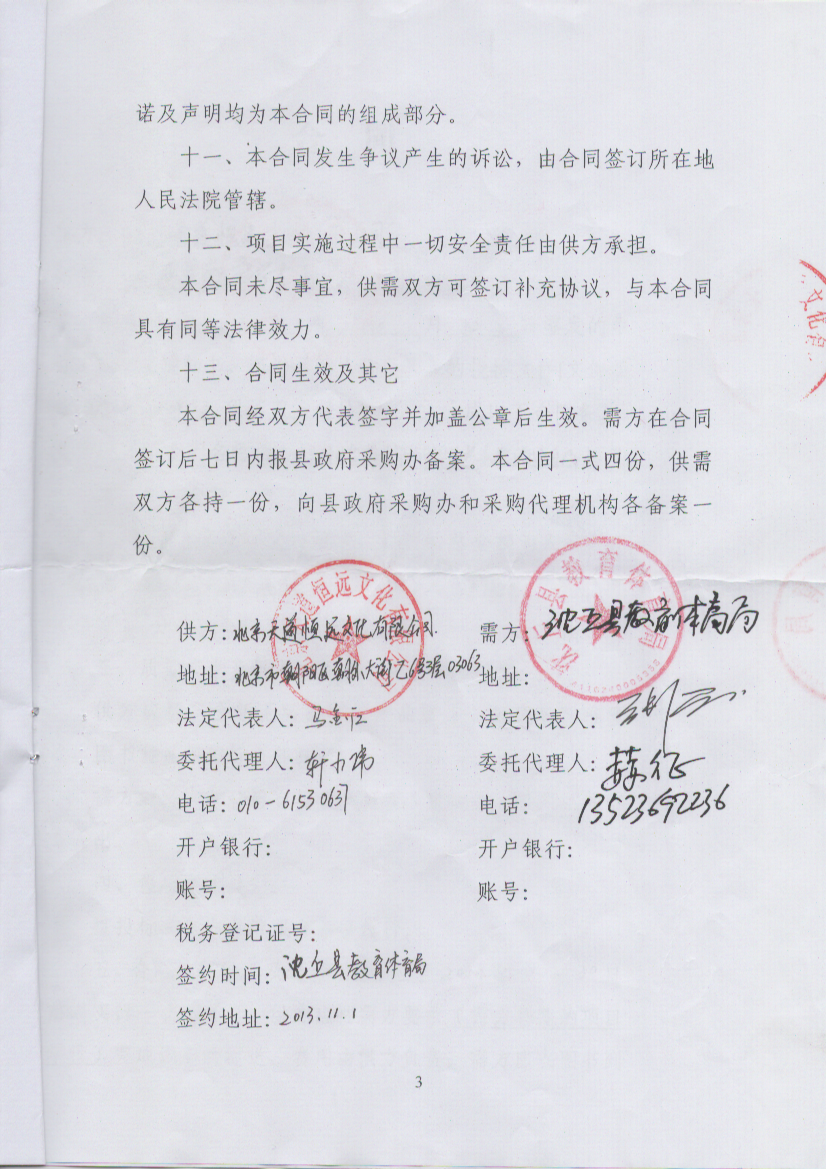 诺及声明均为本合同的组成部分。
十一、本合同发生争议产生的诉讼，由合同签订所在地
人民法院管辖。
十二、项目实施过程中一切安全责任由供方承担。
本合同未尽事宜，供需双方可签订补充协议，与本合同
具有同等法律效力。
十三、合同生效及其它
本合同经双方代表签字并加盖公章后生效。需方在合同
签订后七日内报县政府采购办备案。本合同一式四份，供需
双方各持一份，向县政府采购办和采购代理机构各备案一
份。
供方：北京天道恒远文化有限公司
需方：沈丘县教育体育局
地址：北京市朝阳区朝外大街乙6号3层03063
地址：
法定代表人：马金江
法定代表人：
委托代理人：轩小
委托代理人：征
电话：010-61530637
电话：13523692236
开户银行：
开户银行：
账号：
账号：
税务登记证号：
签约时间：沈丘县教育体育局
签约地址：2013.11.1
3
恒远文化有
县教育体育局
文化有